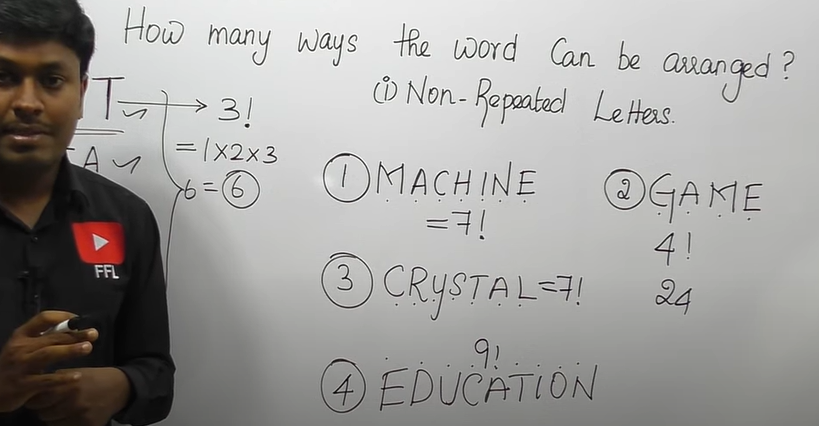 How many ways the word Can be arranged?
(i) Non-Repeated Letters.
T → 3!
= 1×2×3
A
6 = 6
① MACHINE
= 7!
② GAME
4!
24
③ CRYSTAL = 7!
9!
④ EDUCATION
FFL